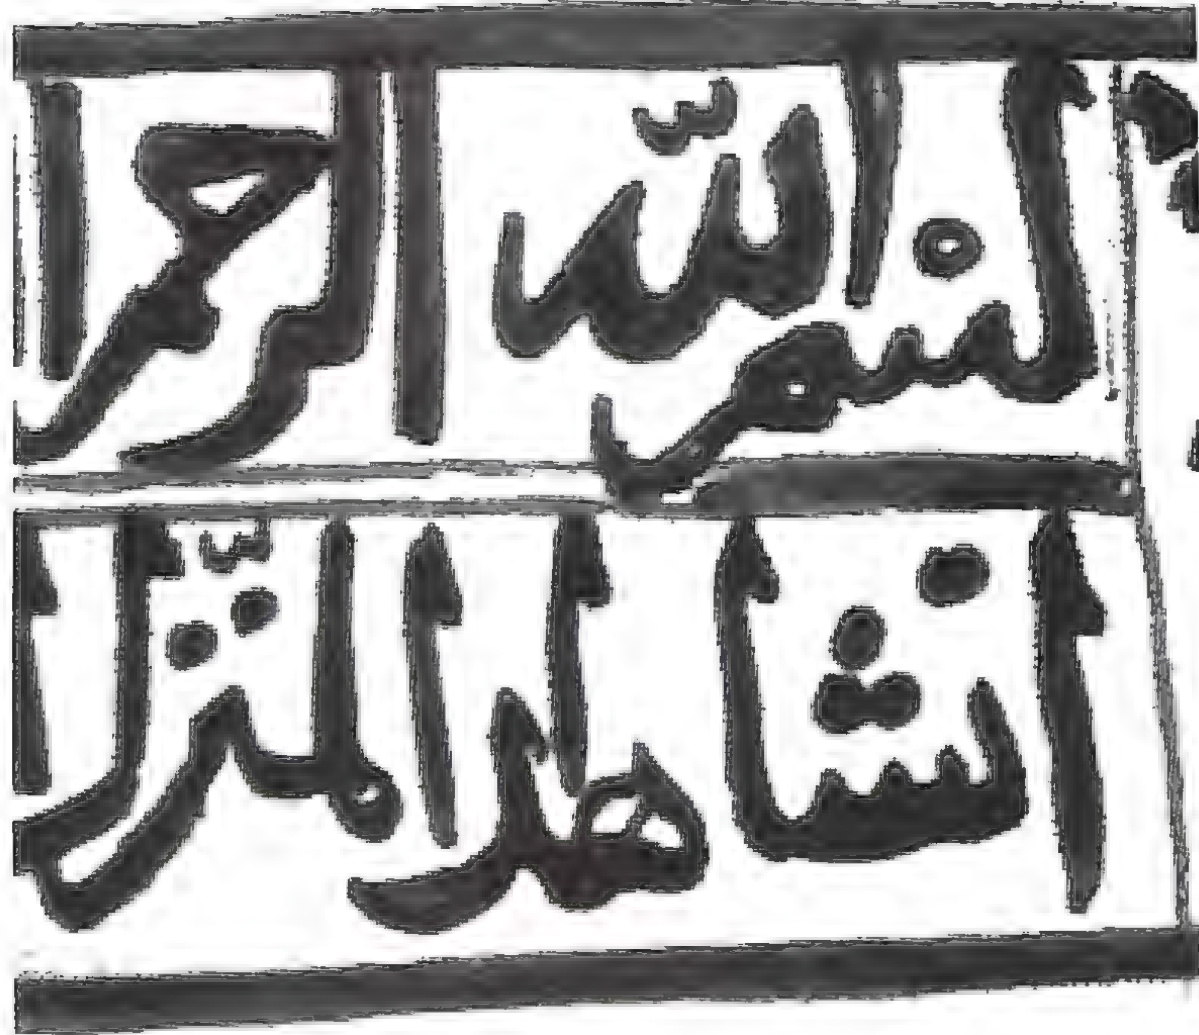 بسم الله الرحمن
انشا هدا المنزل